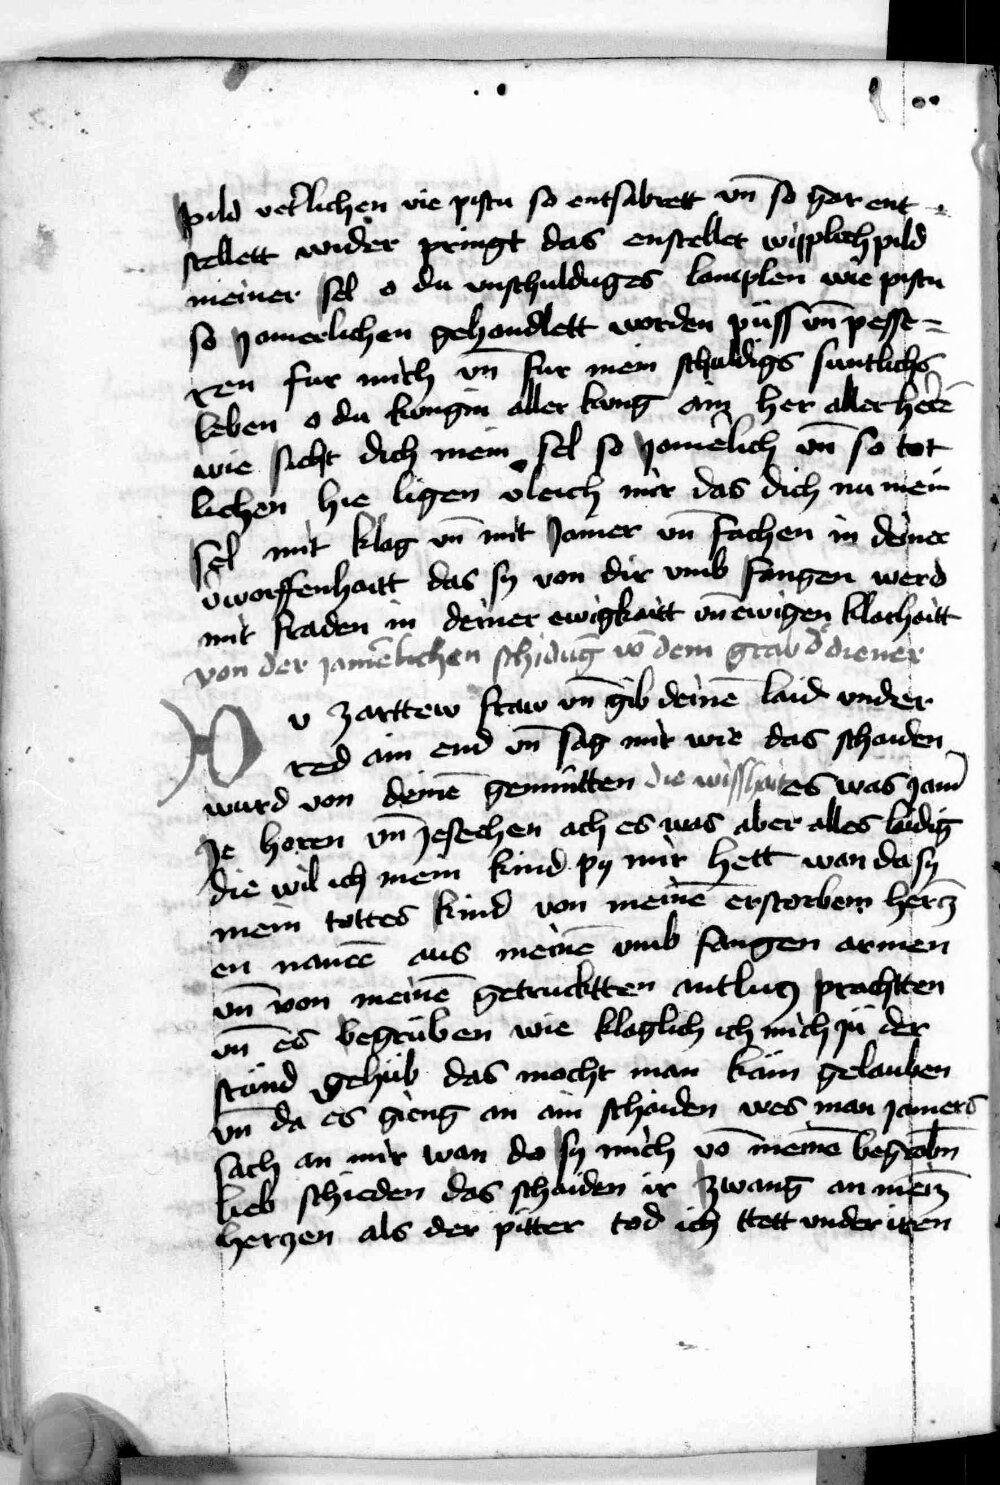 pild vet̄lichen wie pistu so entsabrett vn̄ so gar ent
stellett wider pringt das enstellet wipplich pild
meiner sel o du vnschulduges lamplen wie pistu
so Jamerlichen gehandlett worden püss vn̄ pesse=
ren fur mich vn̄ fur mein schuldigs suntlichs
leben o du kungin aller kung ain her aller herē
wie sicht dich mein sel so Jamēlich vn̄ so tot
lichen hie ligen vleich mir das dich nu mein
sel mit klag vn̄ mit Jamer vn̄ fachen in deiner
v̄worffenhaitt das sy von dir vmb fangen werd
mit fraden in deiner ewigkaitt vn̄ ewigen klarhaitt
von der jamēlichen schidūg vō dem grab d̄ diener
D v zarttew fraw vn̄ gib deinē laid vnd er
red ain end vn̄ sag mir wie das schaiden
ward von deinē gemüitten die wisshait es was Jam̄
Je horen vn̄ Jesechen ach es was aber alles laidig
die wil ich mein kind py mir hett wan da sy
mein tottes kind von meinē erstorbem hercz
en namē aus meinē vmb fangen armen
vn̄ von meinē getrucktten antlucz prachtten
vn̄ es begrüben wie klaglich ich mich zü der
stünd gehüb das mocht man kaim gelauben
vn̄ da es gieng an ain schaiden wes man jamers
sach an mir wan do sy mich vō meinē begrabn̄
lieb schieden das schaiden ir zwang an meim̄
herczen als der pitter tod ich tett vnder iren